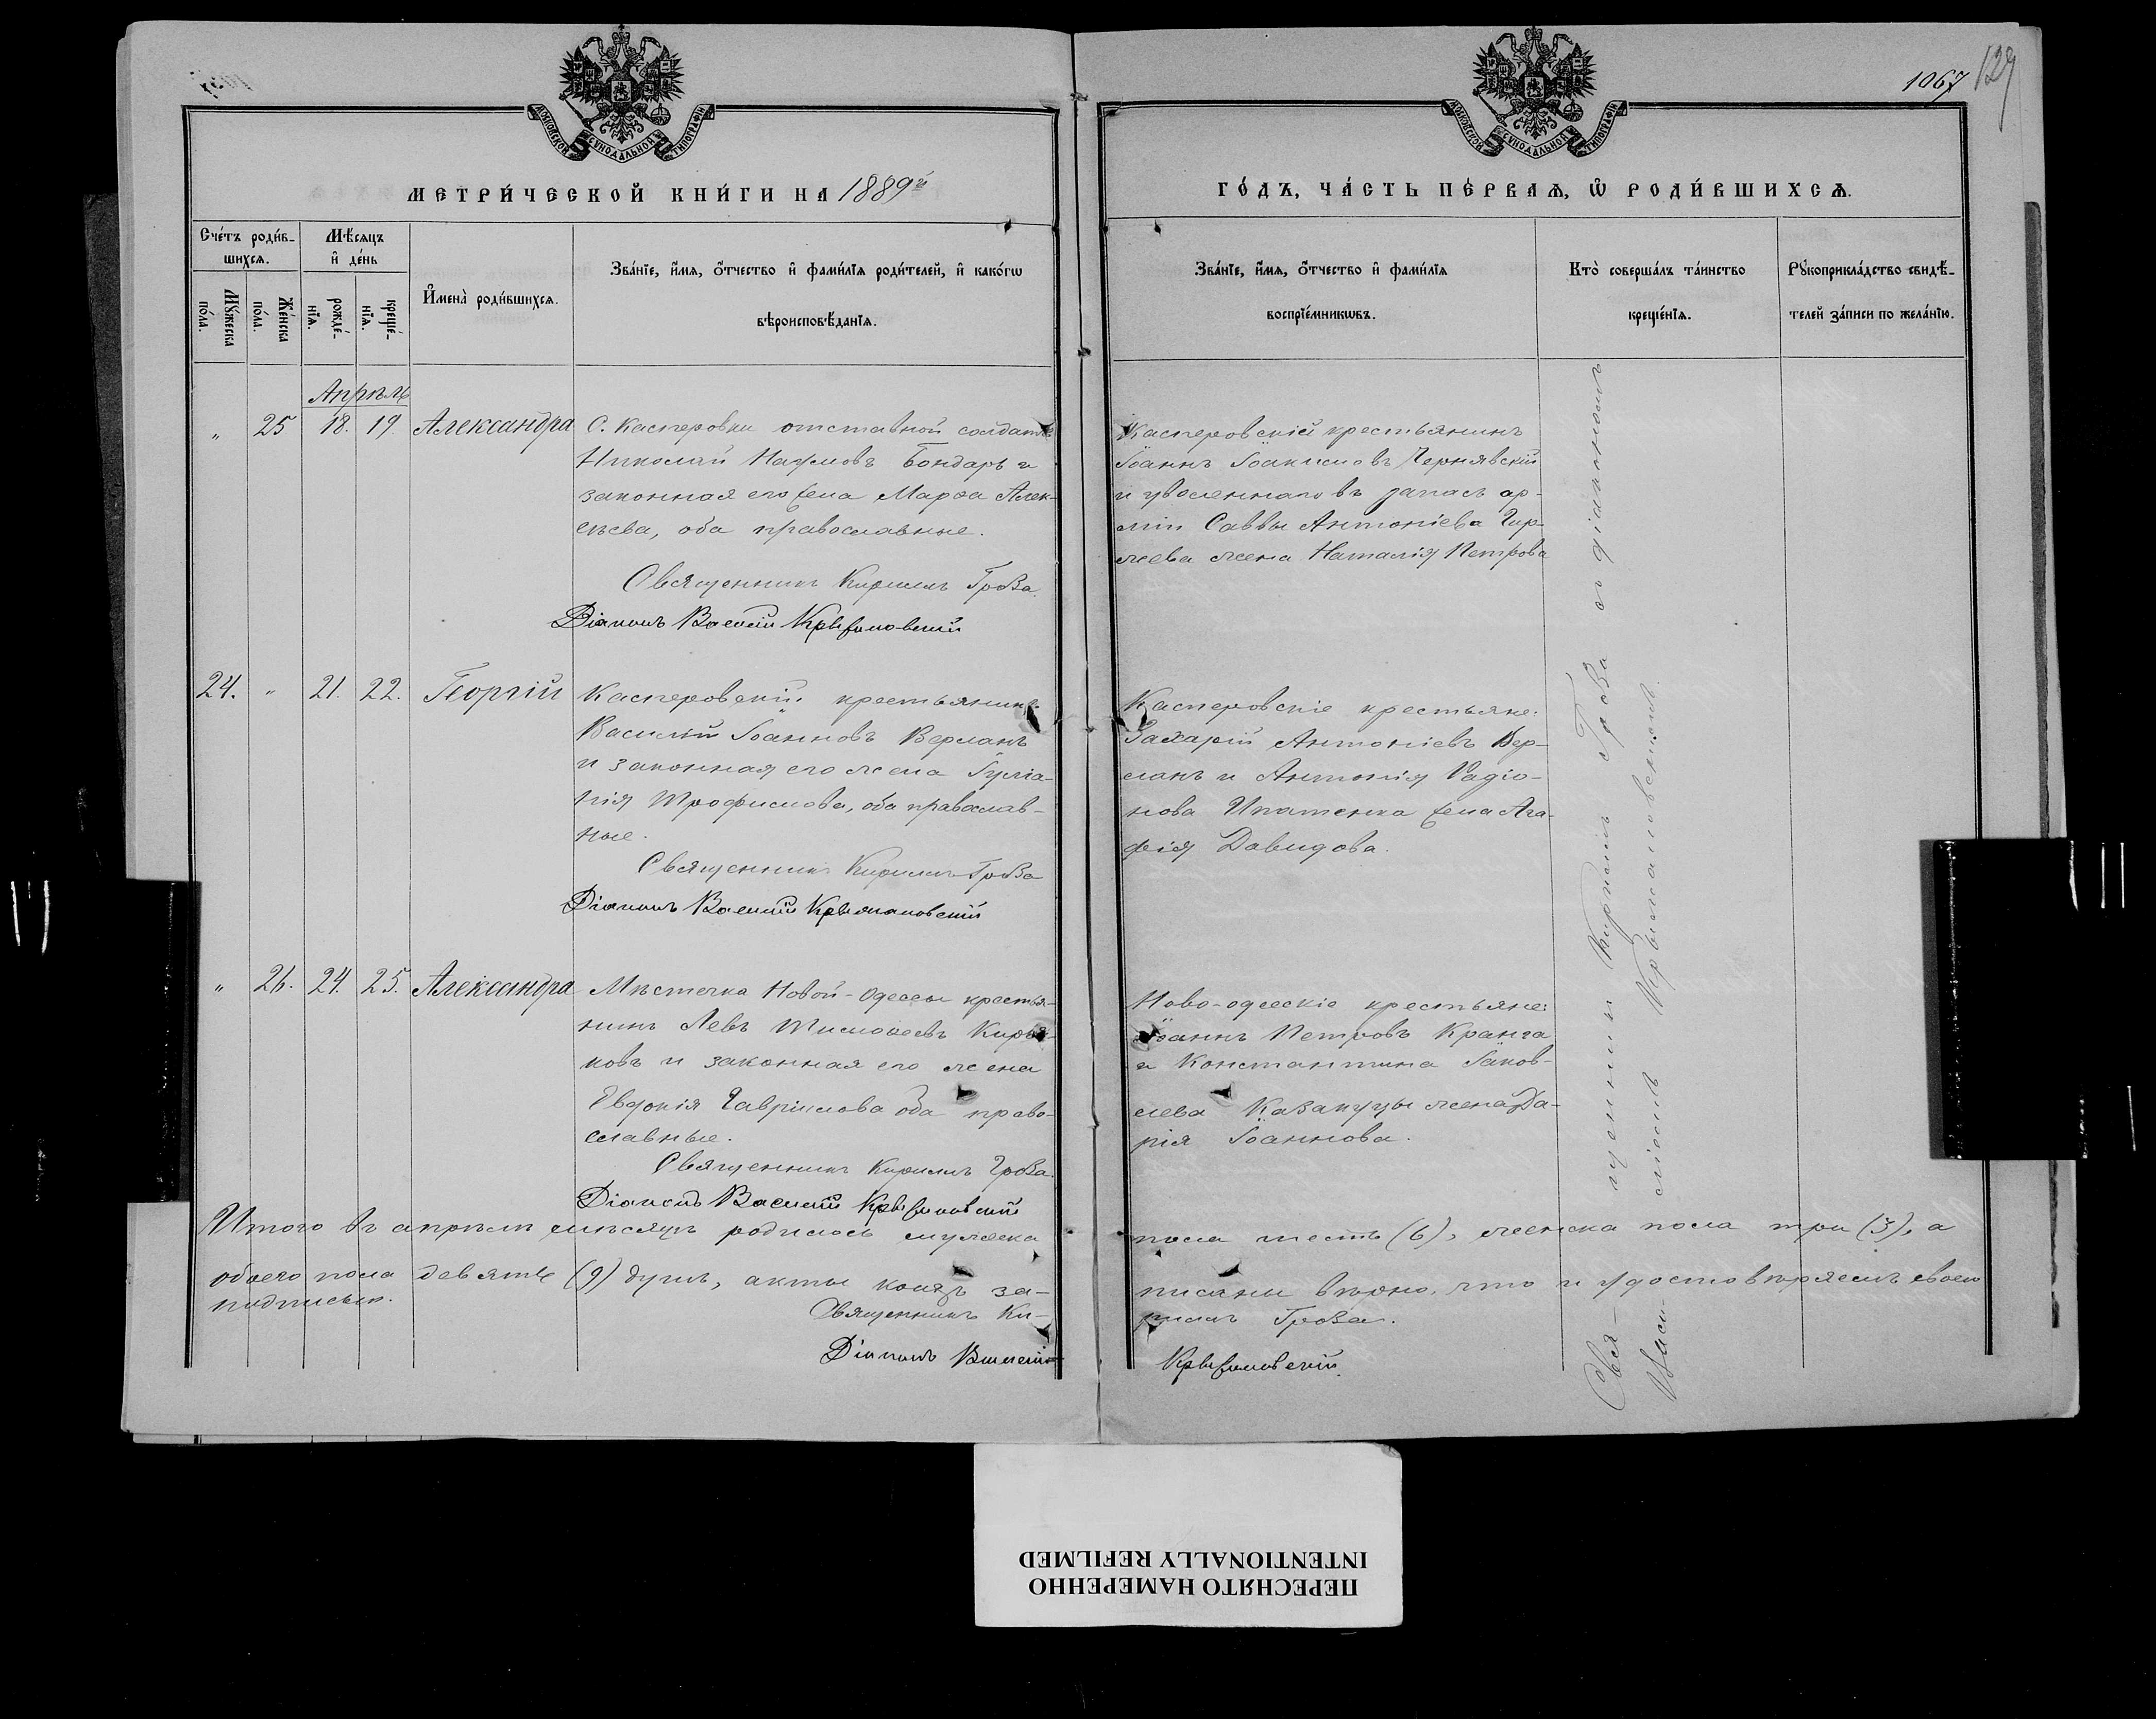 1067
129
МОСКОВСКОЙ СУНОДАЛЬНОЙ ТИПОГРАФІИ
МОСКОВСКОЙ СУНОДАЛЬНОЙ ТИПОГРАФІИ
МЕТРИ́ЧЕСКОЙ КНИ́ГИ НА 1889й
ГО́ДЪ, ЧА́СТЬ ПЕ́РВАѦ, Ѡ РОДИ́ВШИХСѦ.
Сче́тъ роди́в-
шихсѧ.
Мѣ́сѧцъ
и де́нь
Мꙋ́жеска
по́ла.
Же́нска
по́ла.
рожде́-
нїѧ.
креще́-
нїѧ.
Имена̀ роди́вшихсѧ.
Зва́нїе, и́мѧ, ѻ́тчество и фами́лїѧ роди́телей, и како́гѡ
вѣроисповѣ́данїѧ.
Зва́нїе, и́мѧ, ѻ́тчество и фами́лїѧ
воспрїе́мникѡвъ.
Кто̀ соверша́лъ та́инство
креще́нїѧ.
Рꙋкоприкла́дство свидѣ́-
телей за́писи по жела́нїю.
Апрѣль
" 25 18. 19. Александра
С. Касперовки отставной солдатъ
Николай Наумовъ Бондарь и
законная его жена Марѳа Алек-
сѣева, оба православные.
Священникъ Кириллъ Гроза.
Діаконъ Василій Крыжановскій
Касперовскій крестьянинъ
Іоаннъ Іоакимовъ Чернявскій
и уволеннаго въ запасъ ар-
міи Саввы Антоніева
жена Наталія Петрова
24. " 21. 22. Георгій
Касперовскій крестьянинъ
Василій Іоанновъ Верланъ
и законная его жена Іуліа-
нія Трофимова, оба православ-
ные.
Священникъ Кириллъ Гроза
Діаконъ Василій Крыжановскій
Касперовскіе крестьяне:
Захарій Антоніевъ Вер-
ланъ и Антонія Радіо-
нова Ипатенка жена Ага-
фія Давидова.
" 26. 24. 25. Александра
Мѣстечка Новой-Одессы крестья-
нинъ Левъ Тимофеевъ Кирья-
ковъ и законная его жена
Евдокія Гавріилова оба право-
славные.
Священникъ Кириллъ Гроза.
Діаконъ Василій Крыжановскій
Ново-одесскіе крестьяне:
Іоаннъ Петровъ Кранга
и Константина Іаков-
лева Казакуцы жена Да-
рія Іоаннова.
Священникъ Кириллъ Гроза съ діакономъ
Василіемъ Крыжановскимъ.
Итого въ апрѣлѣ мѣсяцѣ родилось мужеска
пола шесть (6), женска пола три (3), а
обоего пола девять (9) душъ, акты коихъ за-
писаны вѣрно, что и удостовѣряемъ своею
подписью.
Священникъ Ки-
риллъ Гроза.
Діаконъ Василій
Крыжановскій.
ПЕРЕСНЯТО НАМЕРЕННО
INTENTIONALLY REFILMED